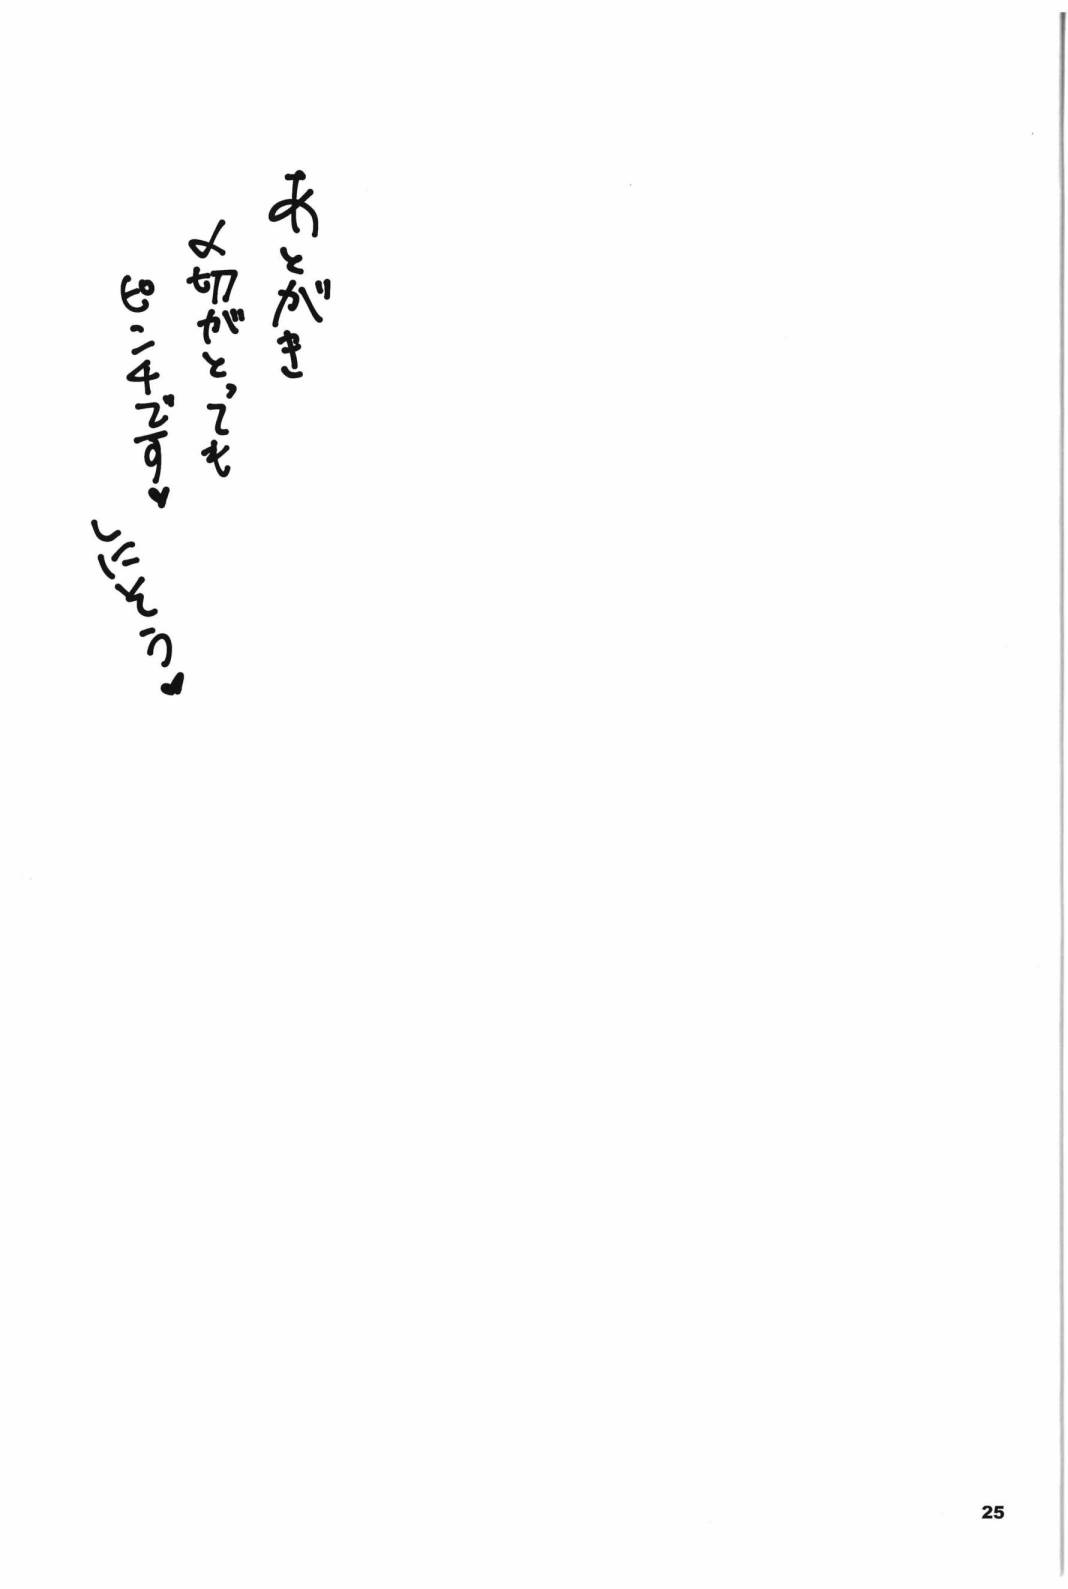 あとがき
〆切がとっても
ピンチです♥
25